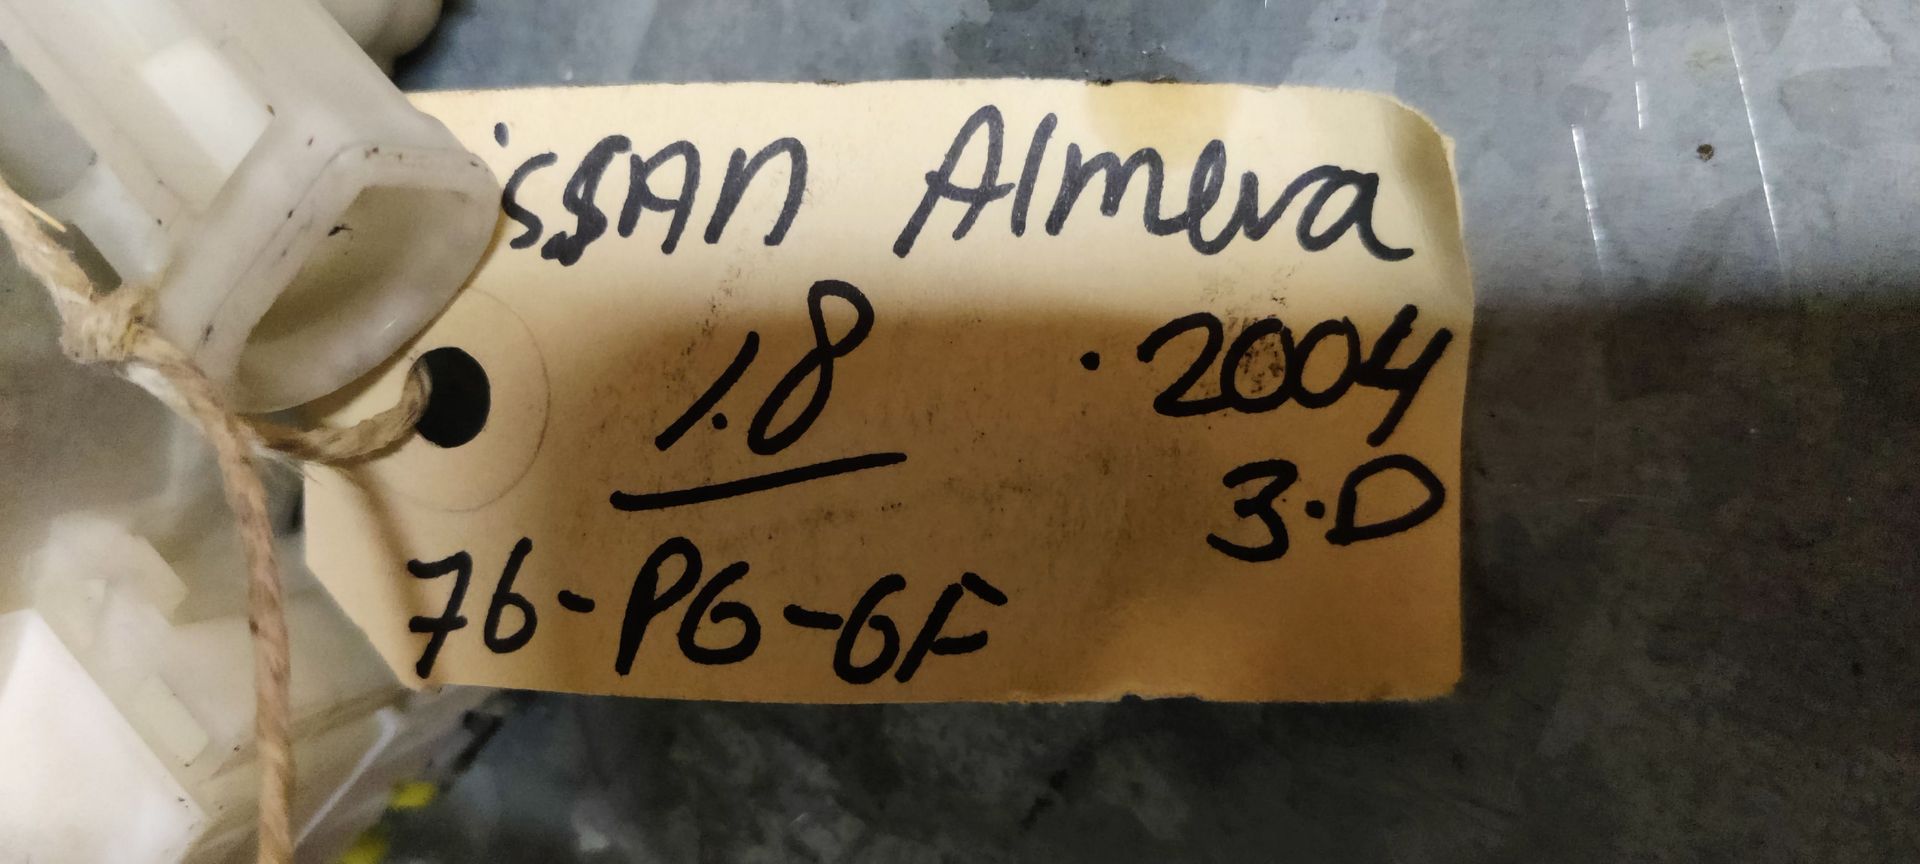 issan Almera
1.8
.2004
3.D
76-PG-GF